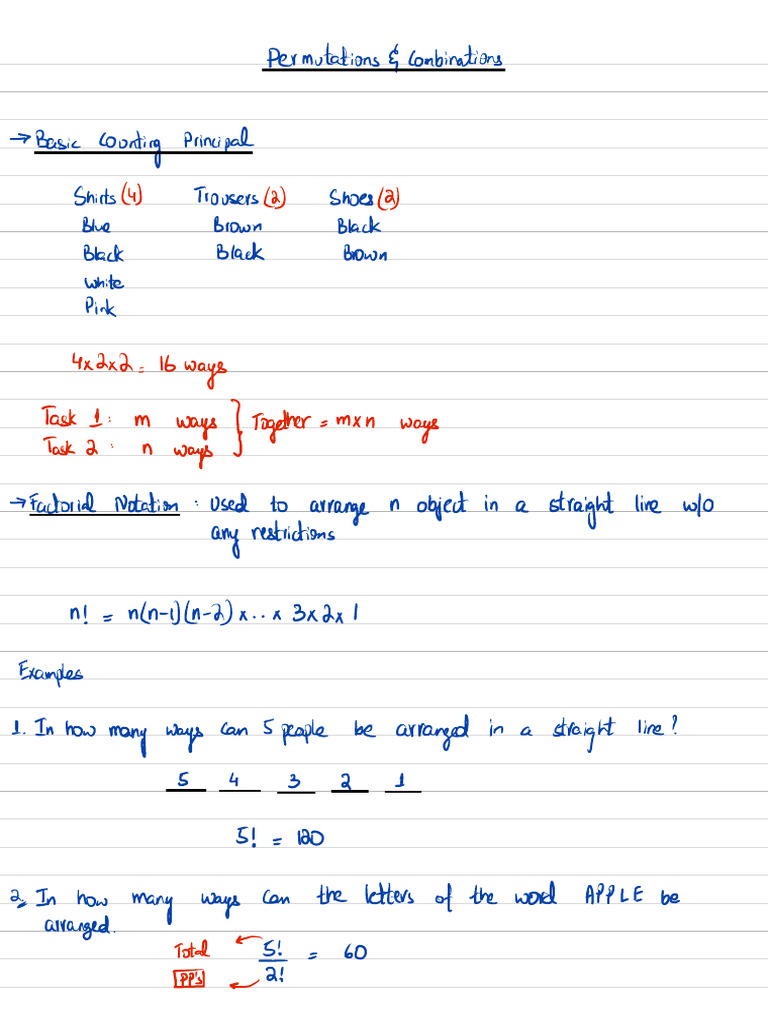 Permutations & Combinations
→ Basic Counting Principal
Shirts (4) Trousers (2) Shoes (2)
Blue Brown Black
Black Black Brown
White
Pink
4x2x2 = 16 ways
Task 1: m ways } Together = mxn ways
Task 2: n ways
→ Factorial Notation : Used to arrange n object in a straight line w/o
any restrictions
n! = n(n-1)(n-2) x .. x 3x2x1
Examples
1. In how many ways can 5 people be arranged in a straight line?
5 4 3 2 1
5! = 120
2. In how many ways can the letters of the word APPLE be
arranged.
Total ← 5!/2! = 60
PP's ←